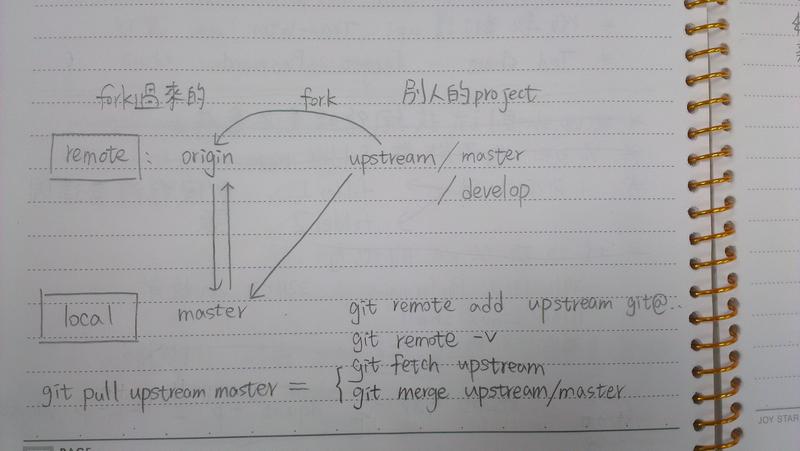 fork過來的 fork 別人的project
remote : origin upstream / master
/ develop
local master git remote add upstream git@...
git remote -v
git fetch upstream
git pull upstream master = { git merge upstream/master
JOY STAR
PAGE